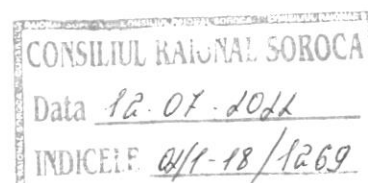 CONSILIUL RAIONAL SOROCA
Data 12.07.2022
INDICELE 02/1-18/1269